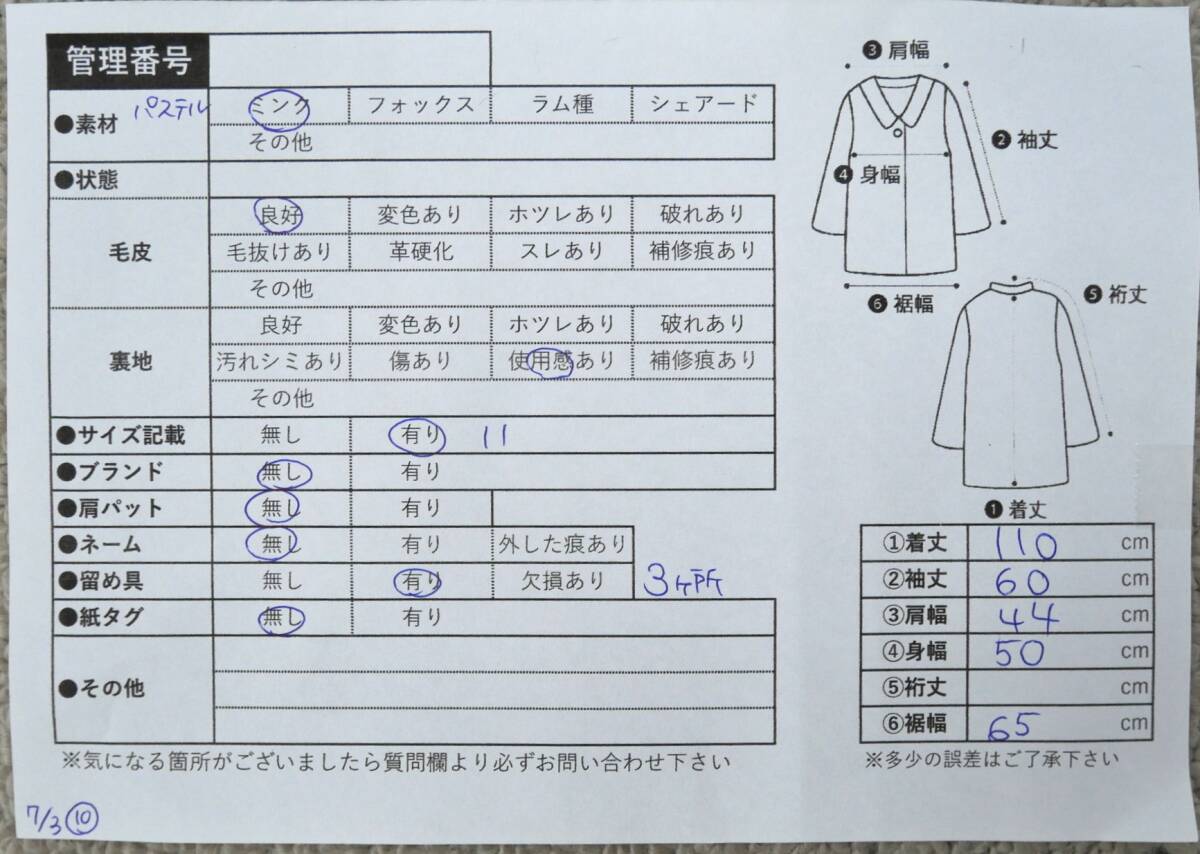 管理番号
●素材 パステル ミンク フォックス ラム種 シェアード
その他
●状態
毛皮 良好 変色あり ホツレあり 破れあり
毛抜けあり 革硬化 スレあり 補修痕あり
その他
裏地 良好 変色あり ホツレあり 破れあり
汚れシミあり 傷あり 使用感あり 補修痕あり
その他
●サイズ記載 無し 有り 11
●ブランド 無し 有り
●肩パット 無し 有り
●ネーム 無し 有り 外した痕あり
●留め具 無し 有り 欠損あり 3ヶ所
●紙タグ 無し 有り
●その他
※気になる箇所がございましたら質問欄より必ずお問い合わせ下さい
7/3 ⑩
❸ 肩幅
❷ 袖丈
❹ 身幅
❻ 裾幅
❺ 裄丈
❶ 着丈
①着丈 110 cm
②袖丈 60 cm
③肩幅 44 cm
④身幅 50 cm
⑤裄丈 cm
⑥裾幅 65 cm
※多少の誤差はご了承下さい